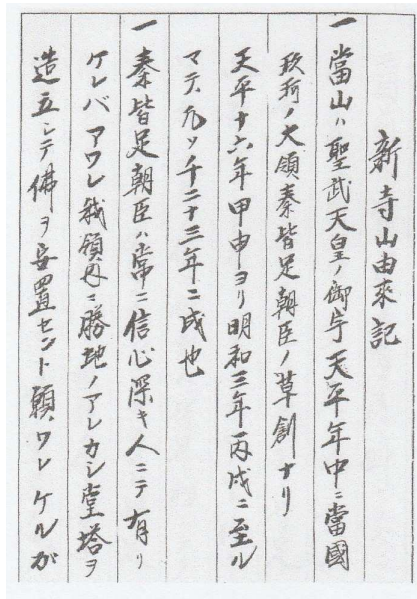 新寺山由來記
一當山ハ聖武天皇ノ御宇天平年中ニ當國
玖珂ノ大領秦皆足朝臣ノ草創ナリ
天平十六年甲申ヨリ明和三年丙戌ニ至ル
マテ凡ソ千二十三年ニ成也
一秦皆足朝臣ハ常ニ信心深キ人ニテ有リ
ケレバアワレ我領内ニ勝地ノアレカシ堂塔ヲ
造立シテ佛ヲ安置セント願ワレケルガ